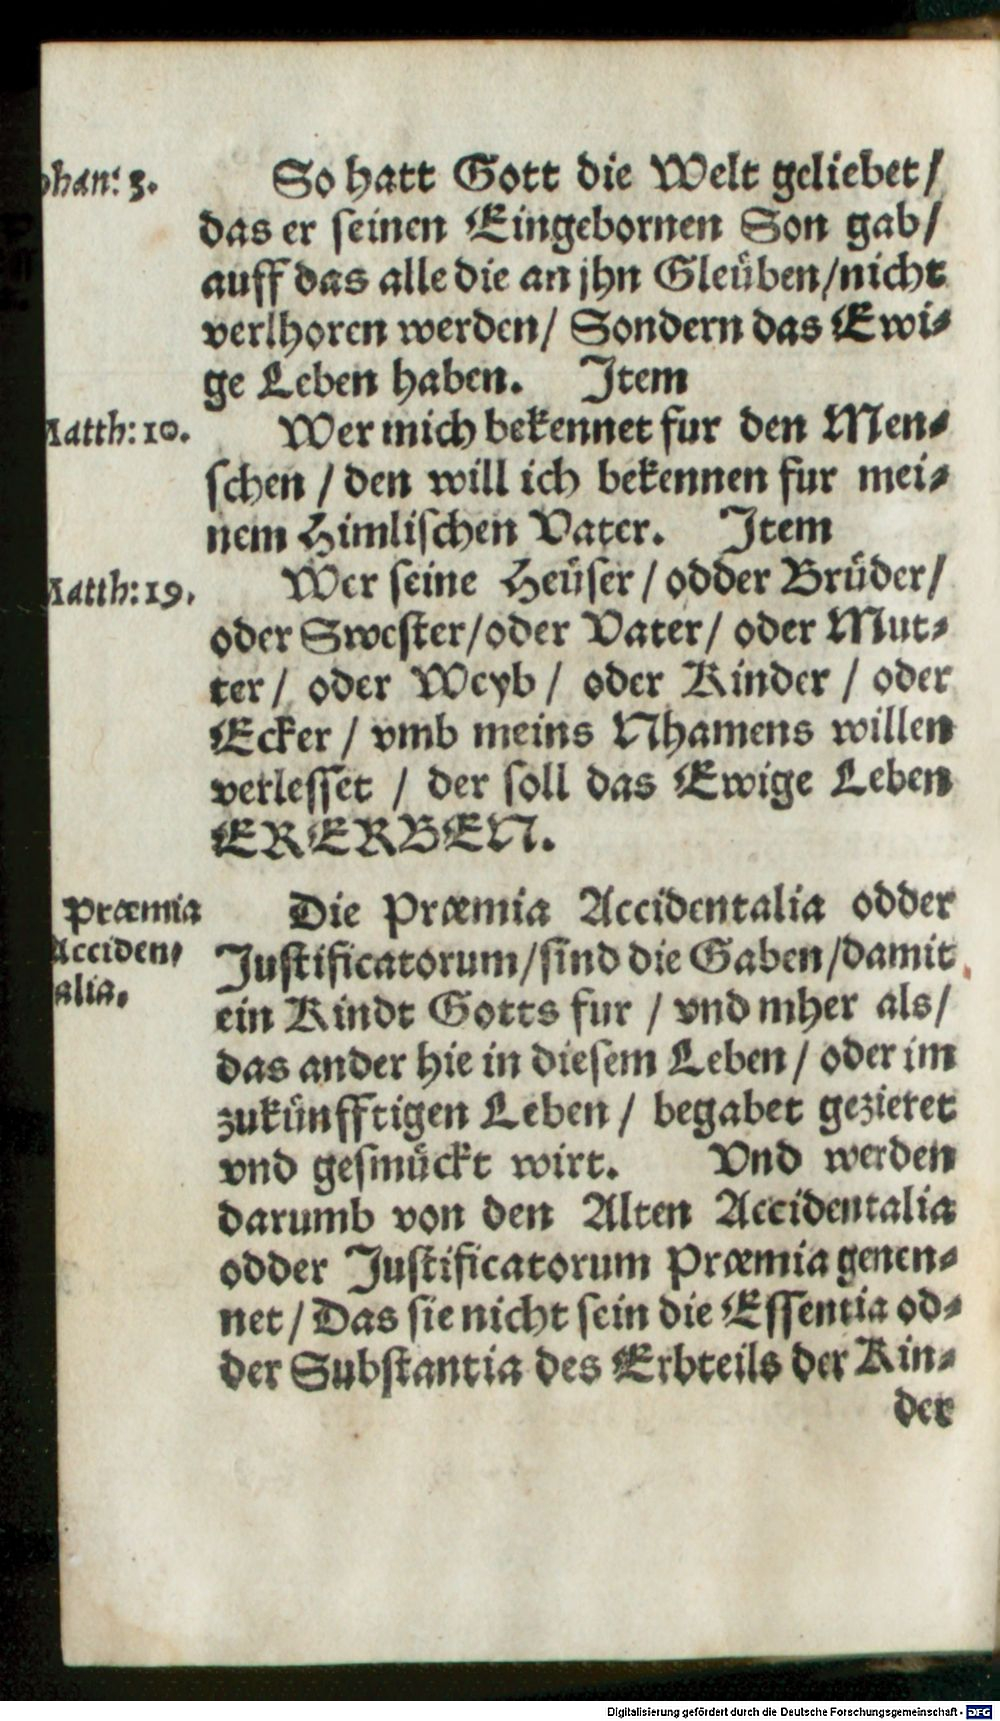 ohan: 3.
So hatt Gott die Welt geliebet/
das er seinen Eingebornen Son gab/
auff das alle die an jhn Gleüben/nicht
verlhoren werden/ Sondern das Ewi-
ge Leben haben. Item
Matth: 10.
Wer mich bekennet fur den Men-
schen / den will ich bekennen fur mei-
nem Himlischen Vater. Item
Matth: 19.
Wer seine Heüser / odder Brüder/
oder Swester/oder Vater/ oder Mut-
ter/ oder Weyb / oder Kinder / oder
Ecker / vmb meins Nhamens willen
verlesset / der soll das Ewige Leben
ERERBEN.
Præmia
Acciden-
alia.
Die Præmia Accidentalia odder
Justificatorum/sind die Gaben/damit
ein Kindt Gotts fur / vnd mher als/
das ander hie in diesem Leben / oder im
zukünfftigen Leben / begabet gezieret
vnd gesmückt wirt. Vnd werden
darumb von den Alten Accidentalia
odder Justificatorum Præmia genen-
net / Das sie nicht sein die Essentia od-
der Substantia des Erbteils der Kin-
der
Digitalisierung gefördert durch die Deutsche Forschungsgemeinschaft - DFG